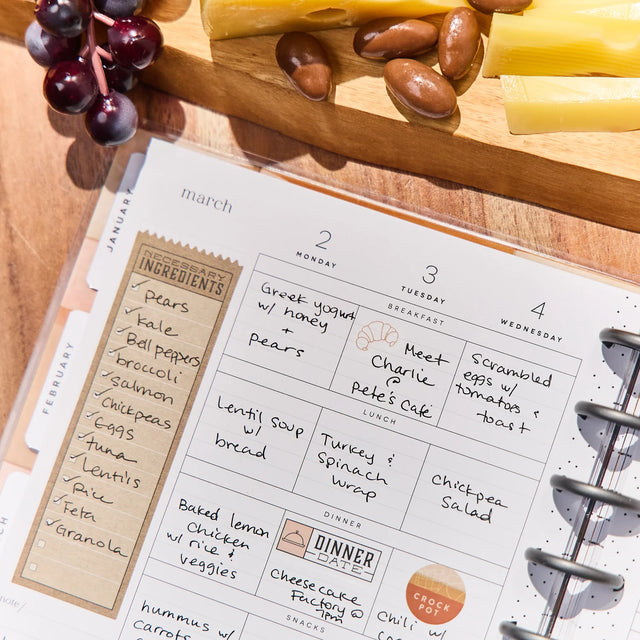 march
JANUARY
FEBRUARY
NECESSARY
INGREDIENTS
pears
kale
Bell peppers
broccoli
salmon
chickpeas
Eggs
tuna
Lentils
Rice
Feta
Granola
note/
2
MONDAY
3
TUESDAY
4
WEDNESDAY
BREAKFAST
Greek yogurt
w/ honey
+
pears
Meet
Charlie
@
Pete's Café
Scrambled
eggs w/
tomatoes &
toast
LUNCH
Lentil soup
w/
bread
Turkey &
Spinach
wrap
Chickpea
Salad
DINNER
Baked lemon
Chicken
w/ rice &
veggies
DINNER
DATE
Cheesecake
Factory @
7pm
CROCK
POT
Chili w/
SNACKS
hummus w/
carrots